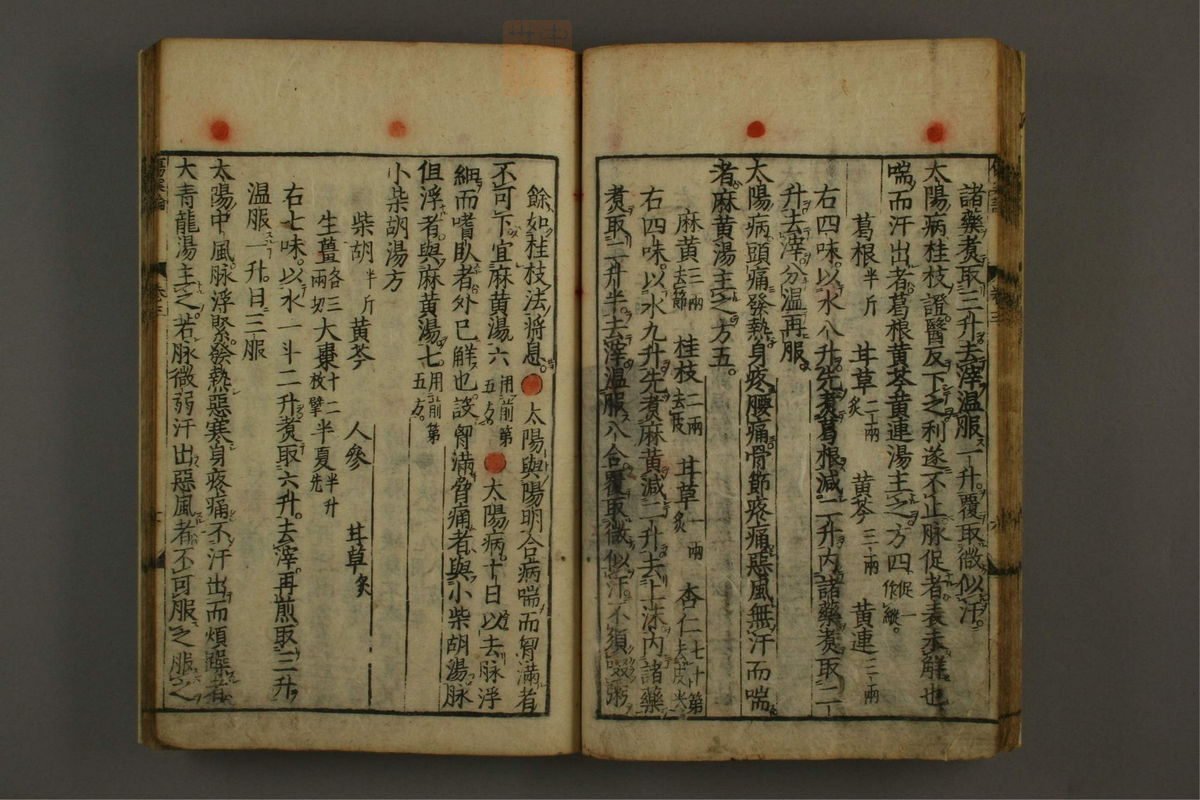 諸藥煮取三升去滓温服一升覆取微似汗
太陽病桂枝證醫反下之利遂不止脉促者表未解也
喘而汗出者葛根黄芩黄連湯主之方四促一作縱
葛根半斤 甘草二兩炙 黄芩三兩 黄連三兩
右四味以水八升先煮葛根減二升内諸藥煮取二
升去滓分温再服
太陽病頭痛發熱身疼腰痛骨節疼痛惡風無汗而喘
者麻黄湯主之方五
麻黄三兩去節 桂枝二兩去皮 甘草一兩炙 杏仁七十箇去皮尖
右四味以水九升先煮麻黄減二升去上沫内諸藥
煮取二升半去滓温服八合覆取微似汗不須啜粥
餘如桂枝法將息 太陽與陽明合病喘而胷滿者
不可下宜麻黄湯六用前第五方 太陽病十日以去脉浮
細而嗜臥者外已解也設胷滿脅痛者與小柴胡湯脉
但浮者與麻黄湯七用前第五方
小柴胡湯方
柴胡半斤 黄芩 人參 甘草炙
生薑各三兩切 大棗十二枚擘 半夏半升洗
右七味以水一斗二升煮取六升去滓再煎取三升
温服一升日三服
太陽中風脉浮緊發熱惡寒身疼痛不汗出而煩躁者
大青龍湯主之若脉微弱汗出惡風者不可服之服之